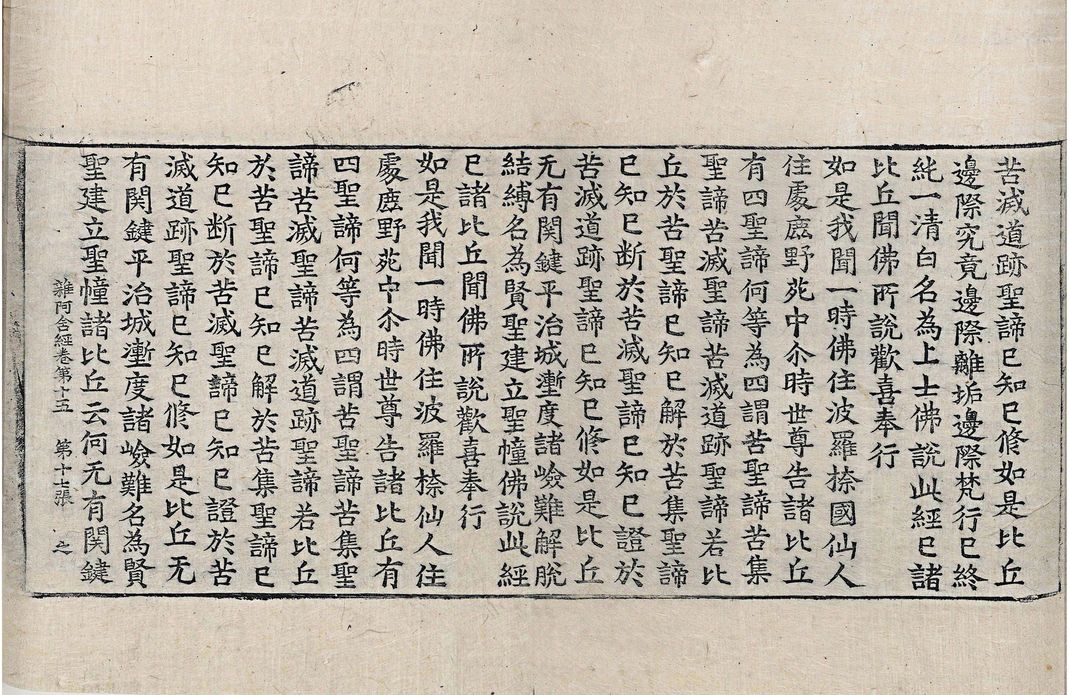 苦滅道跡聖諦已知已修如是比丘
邊際究竟邊際離垢邊際梵行已終
純一清白名為上士佛說此經已諸
比丘聞佛所說歡喜奉行
如是我聞一時佛住波羅㮈國仙人
住處鹿野苑中尒時世尊告諸比丘
有四聖諦何等為四謂苦聖諦苦集
聖諦苦滅聖諦苦滅道跡聖諦若比
丘於苦聖諦已知已解於苦集聖諦
已知已断於苦滅聖諦已知已證於
苦滅道跡聖諦已知已修如是比丘
无有関鍵平治城壍度諸嶮難解脫
結縛名為賢聖建立聖幢佛說此經
已諸比丘聞佛所說歡喜奉行
如是我聞一時佛住波羅㮈仙人住
處鹿野苑中尒時世尊告諸比丘有
四聖諦何等為四謂苦聖諦苦集聖
諦苦滅聖諦苦滅道跡聖諦若比丘
於苦聖諦已知已解於苦集聖諦已
知已断於苦滅聖諦已知已證於苦
滅道跡聖諦已知已修如是比丘无
有関鍵平治城壍度諸嶮難名為賢
聖建立聖幢諸比丘云何无有関鍵
雜阿含經卷第十五 第十七張